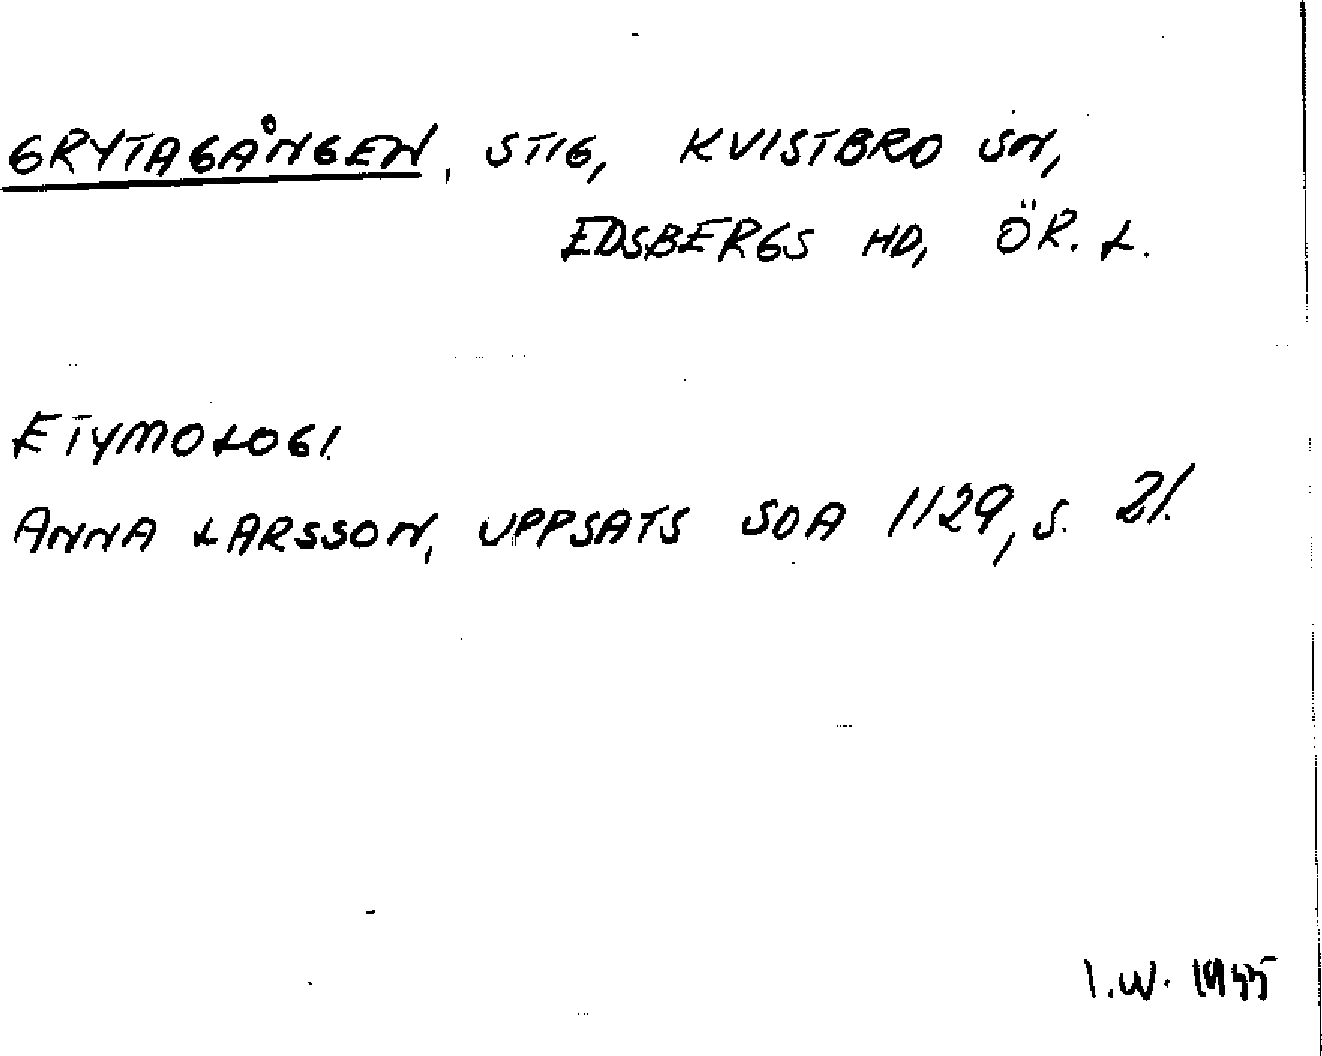 GRYTAGÅNGEN, STIG, KVISTBRO SN,
EDSBERGS HD, ÖR. L.
ETYMOLOGI.
ANNA LARSSON, UPPSATS SOA 1129, S. 21.
I.W. 1955